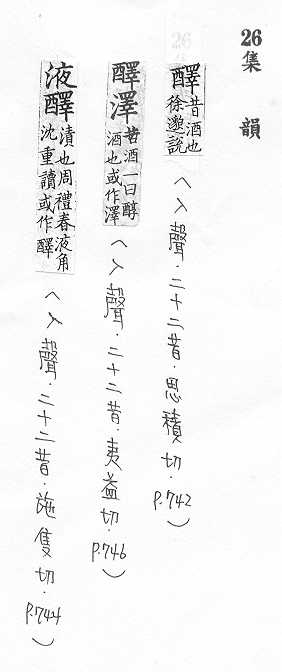 26集韻
醳昔酒也徐邈說（入聲．二十二昔．思積切．P.742）
醳澤苦酒一曰醇酒也或作澤（入聲．二十二昔．夷益切．P.746）
液醳漬也周禮春液角沈重讀或作醳（入聲．二十二昔．施隻切．P.744）